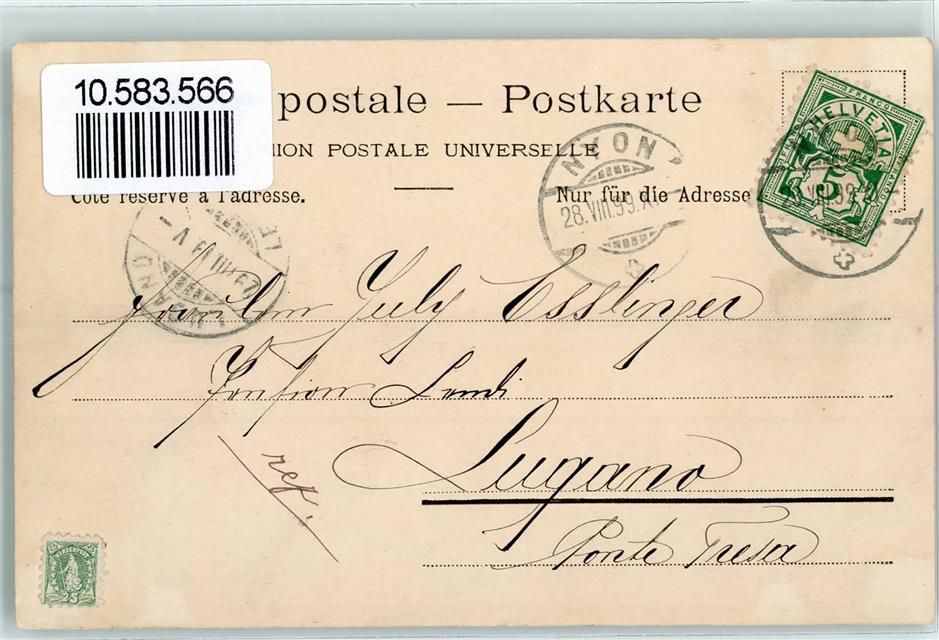 10.583.566
postale — Postkarte
NION POSTALE UNIVERSELLE
Côté réservé à l'adresse.
Nur für die Adresse
FRANCO
HELVETIA
5
NYON
28.VIII.99.XI
LUGANO
29.VIII.99.V
Fräulein July Esslinger
Pension Landi
Lugano
Ponte Tresa
ref.
KINDERPOST
25